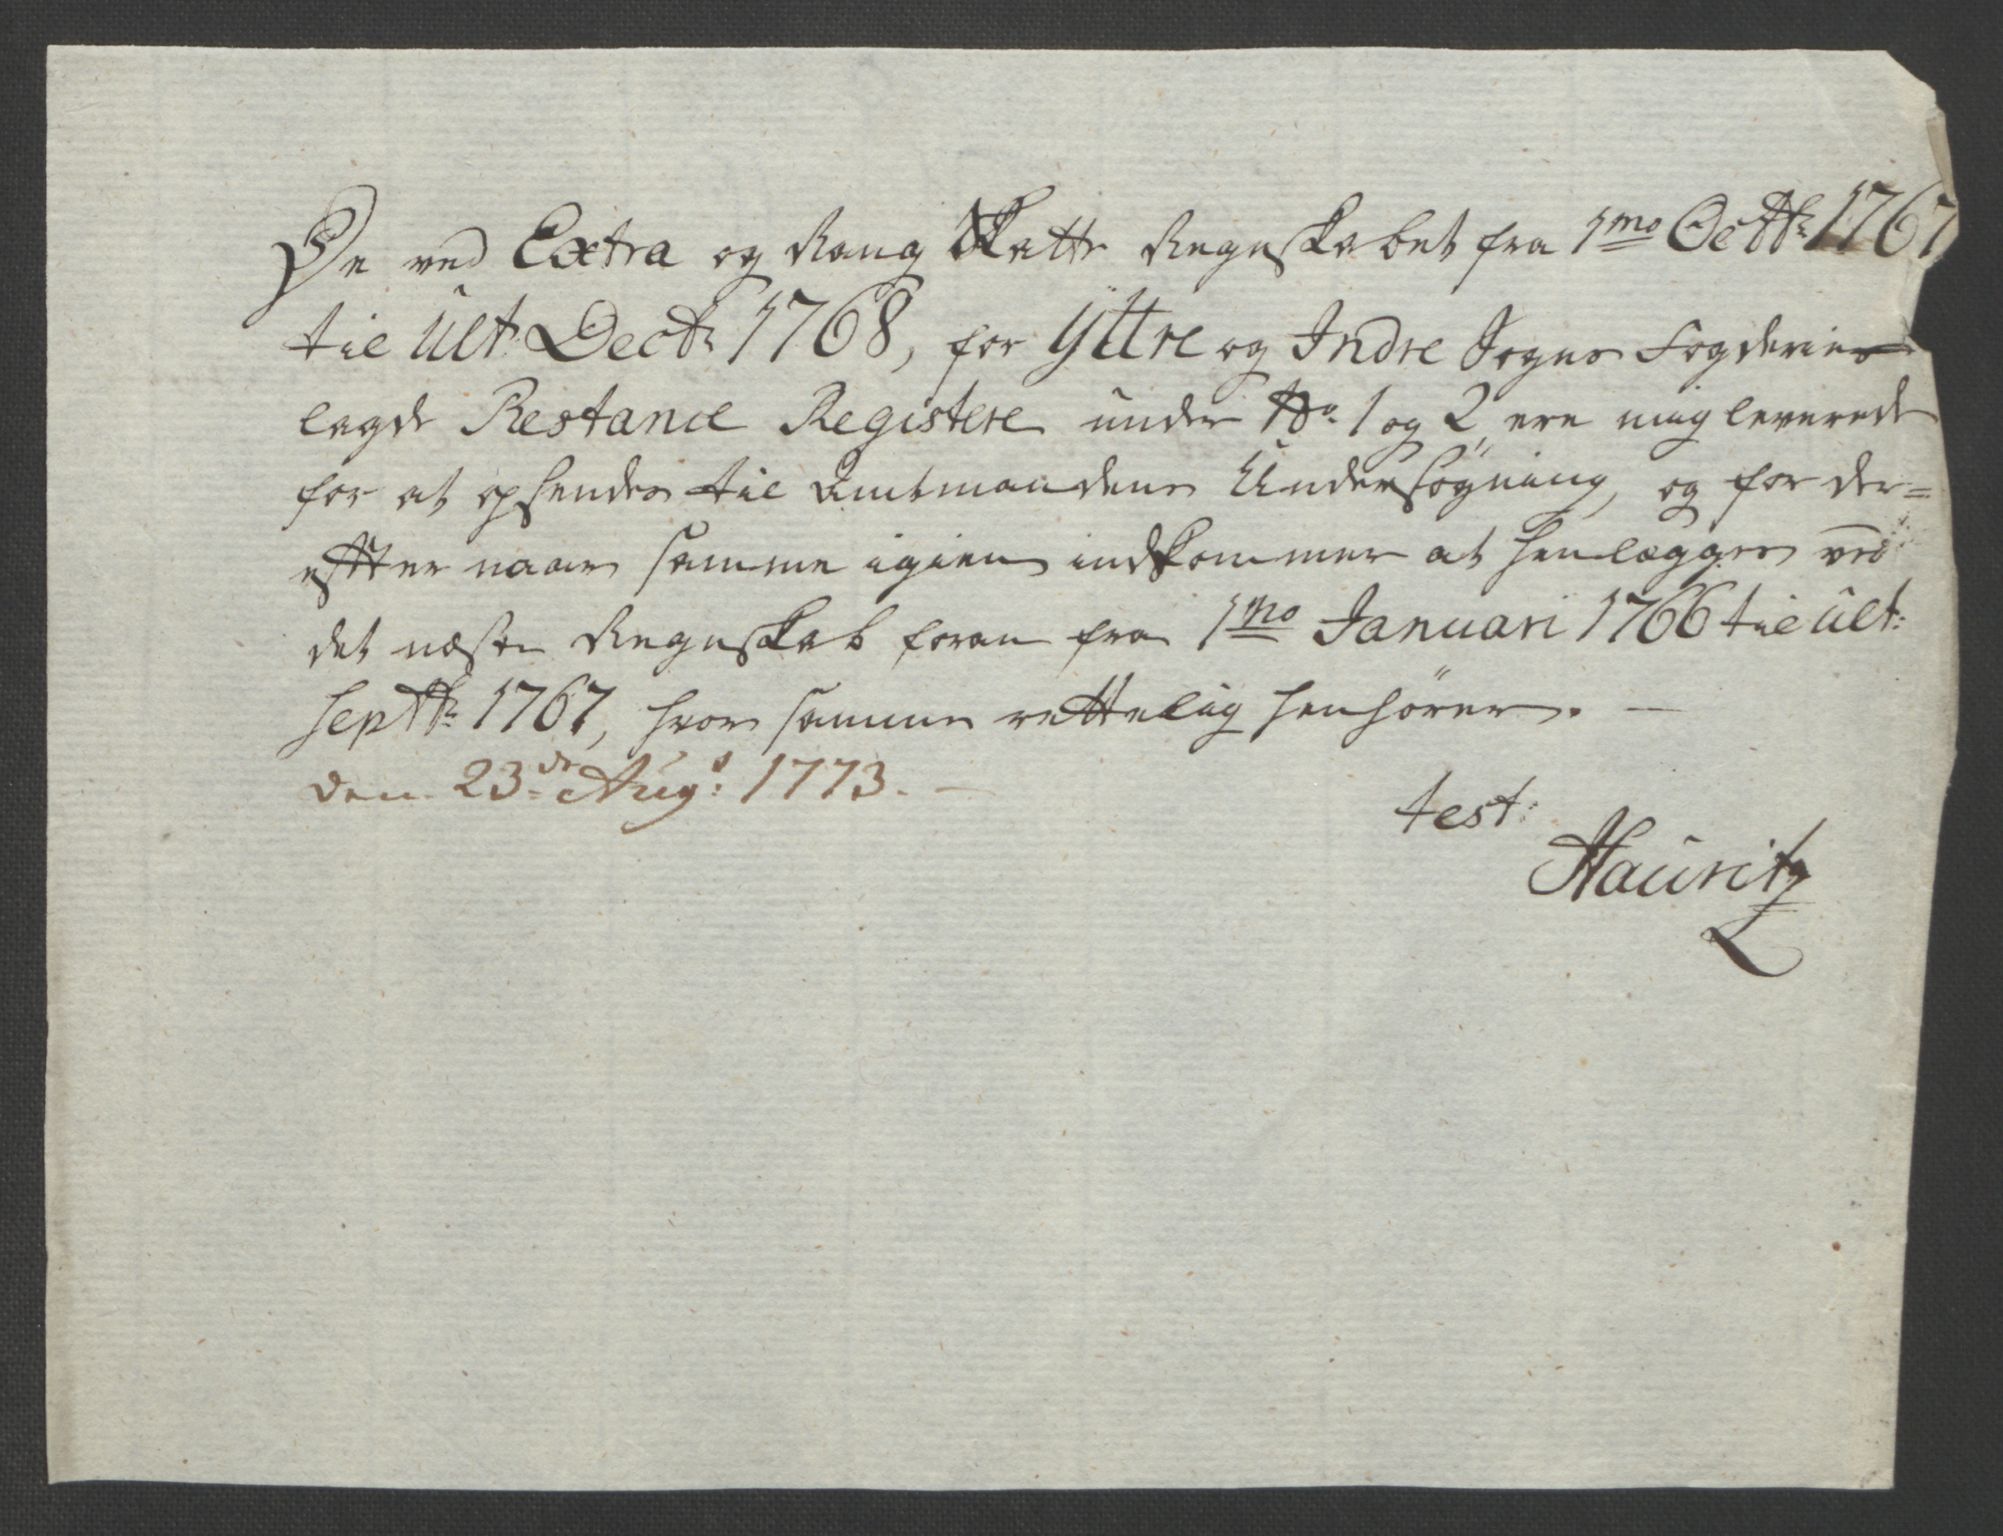 De ved Extra og Rang Skatte Regnskabet fra 1mo Octbr: 1767
til Ult: Decbr 1768, for Yttre og Indre Sogns Fogderier
lagde Restance Registere under No. 1 og 2, ere mig leverede
for at opsendes til Amtmandens Undersögning, og for der=
effter naar samme igien indkommer at henlægges ved
det næste Regnskab foran fra 1mo Januari 1766 til Ult:
Septbr: 1767, hvor samme rettelig henhörer. —
den 23de Aug: 1773. —
test:
Hauritz